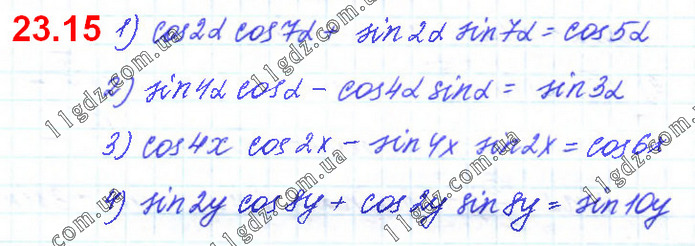 23.15 1) cos2α cos7α + sin2α sin7α = cos5α
2) sin4α cosα - cos4α sinα = sin3α
3) cos4x cos2x - sin4x sin2x = cos6x
4) sin2y cos8y + cos2y sin8y = sin10y
11gdz.com.ua
11gdz.com.ua
11gdz.com.ua
11gdz.com.ua